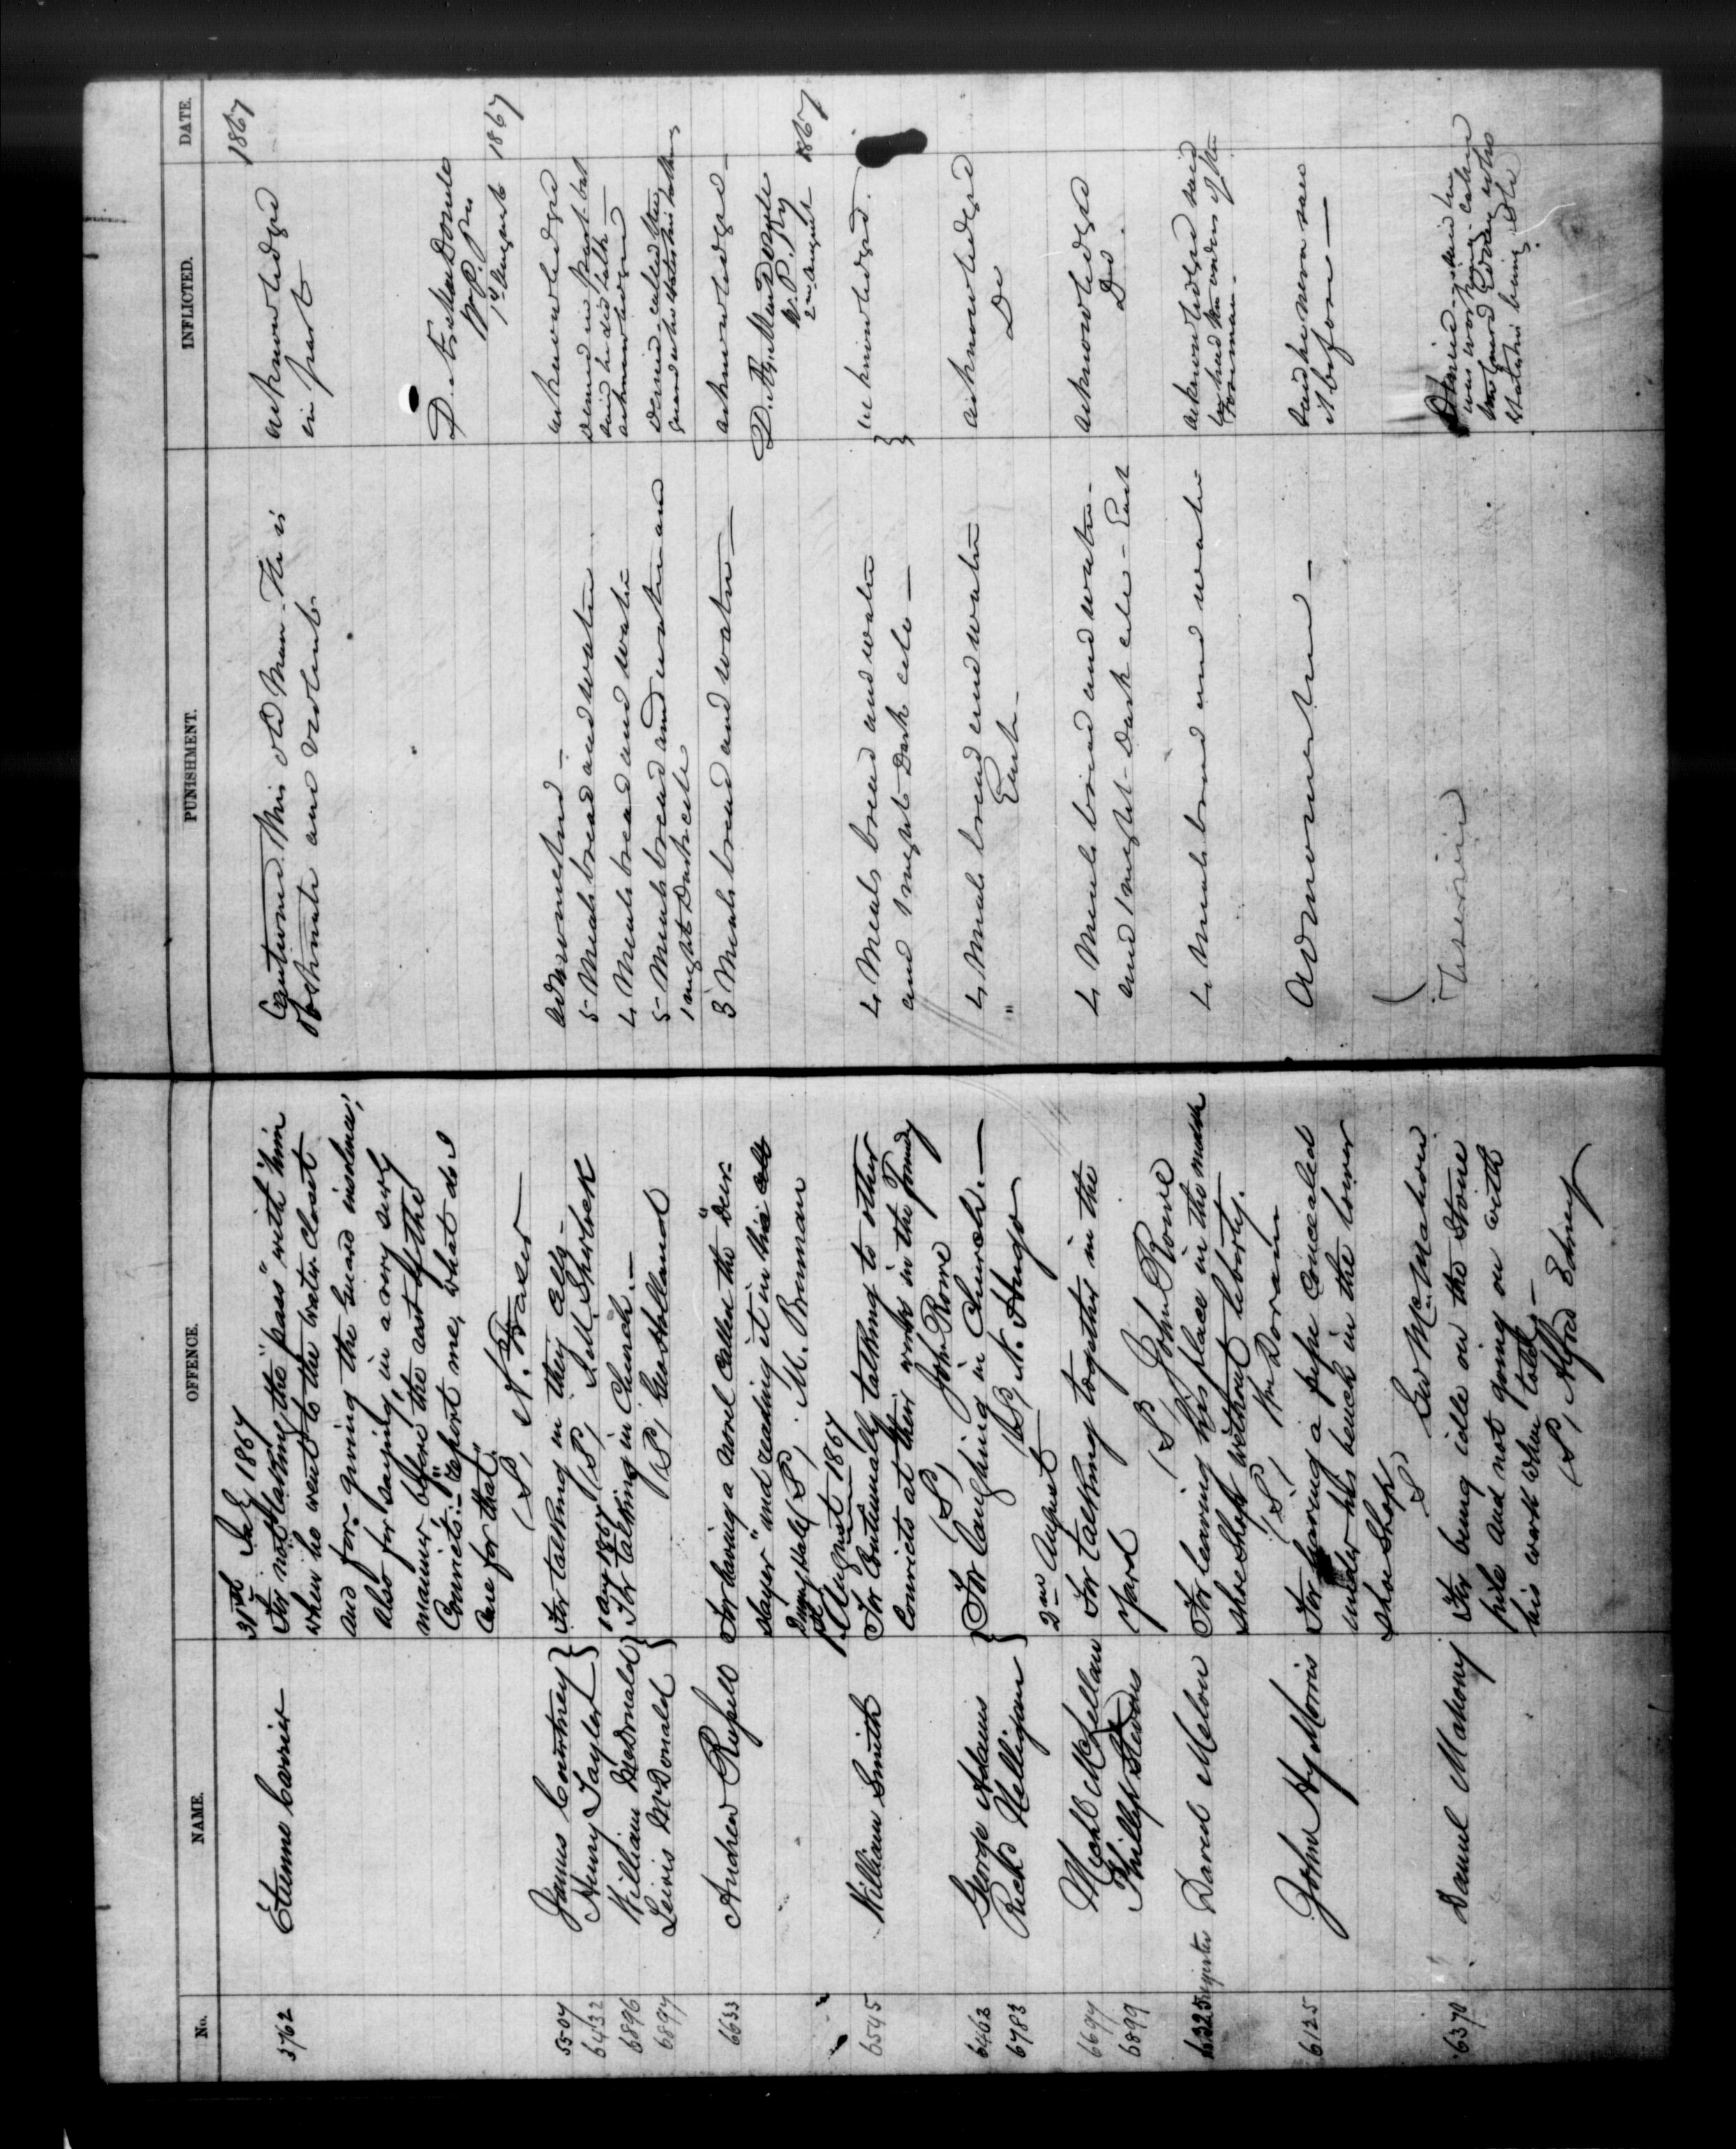 No. NAME. OFFENCE. PUNISHMENT. INFLICTED. DATE.
31st July 1867
1867
3762 Etienne Carrier For not taking the "pass" with him
when he went to the water closet
and for giving the Guard insolence;
also for saying, in a very surly
manner before the east of the
Convicts:- "report me, what do I
care for that."
(S) N. Fraser
Cautioned. This old Man - He is
obstinate and violent.
acknowledged
in part
D. Æ. MacDonell
W. P. Py
1st August 1867
5507 James Courtney } For talking in their cells -
6432 Henry Taylor } 1 Aug 1867 (S) Sherlock
admonished -
5 Meals bread and water
acknowledged
denied in part but
said he did talk -
6896 William McDonald } For talking in Church. -
6897 Lewis McDonald } (S) Geo Holland
4 Meals bread and water
5 Meals bread and water and
1 night Dark cell
acknowledged
6633 Andrew Russell For having a novel called the "Deer
Slayer" and reading it in his cell
(S) M. Brennan
3 Meals bread and water -
acknowledged -
D. Æ. MacDonell
W. P. Py
2nd August 1867
1st August 1867
6545 William Smith For Continually talking to other
Convicts at their work in the Foundry
(S) John Rowe
4 Meals bread and water
and 1 night Dark cell -
acknowledged.
6463 George Adams } For laughing in Church. -
6783 Richd Helligan } (S) N. Hugo
4 Meals bread and water
" Each -
acknowledged
Do
2nd August
6697 Michl McLellan For talking together in the
6899 Phillip Stevens Yard (S) John Rowe
4 Meals bread and water -
and 1 night Dark cell - Each
acknowledged
Do.
6325 David Melow For leaving his place in the
shoe shop without liberty.
(S) Wm Doran
4 Meals bread and water
acknowledged said
6125 John Hy Morris For having a pipe concealed
under his bench in the lower
shoe shop
(S) Ew McMahon
Admonished -
said he never saw
it before -
6370 Daniel Mahony For being idle on the Stone
pile and not going on with
his work when told. -
(S) Alfred Edney
Denied - said he
was working when
the Guard Edney